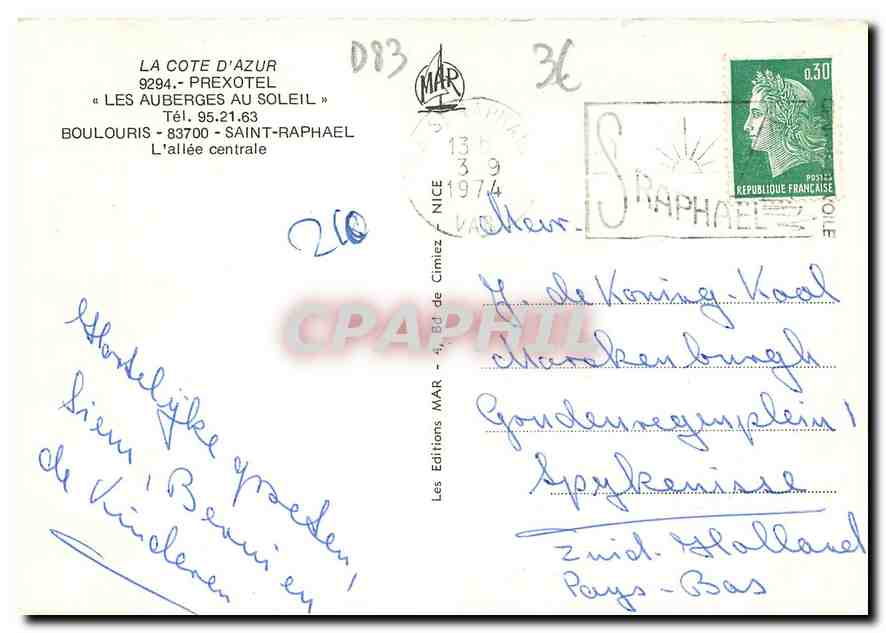 LA COTE D'AZUR
9294.- PREXOTEL
« LES AUBERGES AU SOLEIL »
Tél. 95.21.63
BOULOURIS - 83700 - SAINT-RAPHAEL
L'allée centrale
D83
MAR
3€
0,30
POSTES
REPUBLIQUE FRANÇAISE
13 H
3 9
1974
VAR
S RAPHAEL
VOILE
210
Hartelijke groeten
Siem, Bennie en
de Kinderen
Les Editions MAR - 4, Bd de Cimiez - NICE
Mevr.
J. de Koning-Kaal
Marckenburgh
Goudenregenplein 1
Spykenisse
Zuid-Holland
Pays-Bas
CPAPHIL